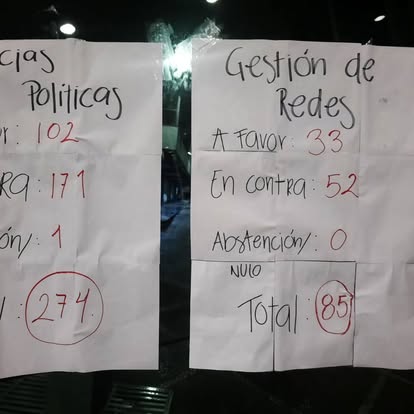 cias
Políticas
r: 102
RA: 171
ón/: 1
/: 274
Gestión de
Redes
A Favor: 33
En contra: 52
Abstención/: 0
NULO
Total: 85